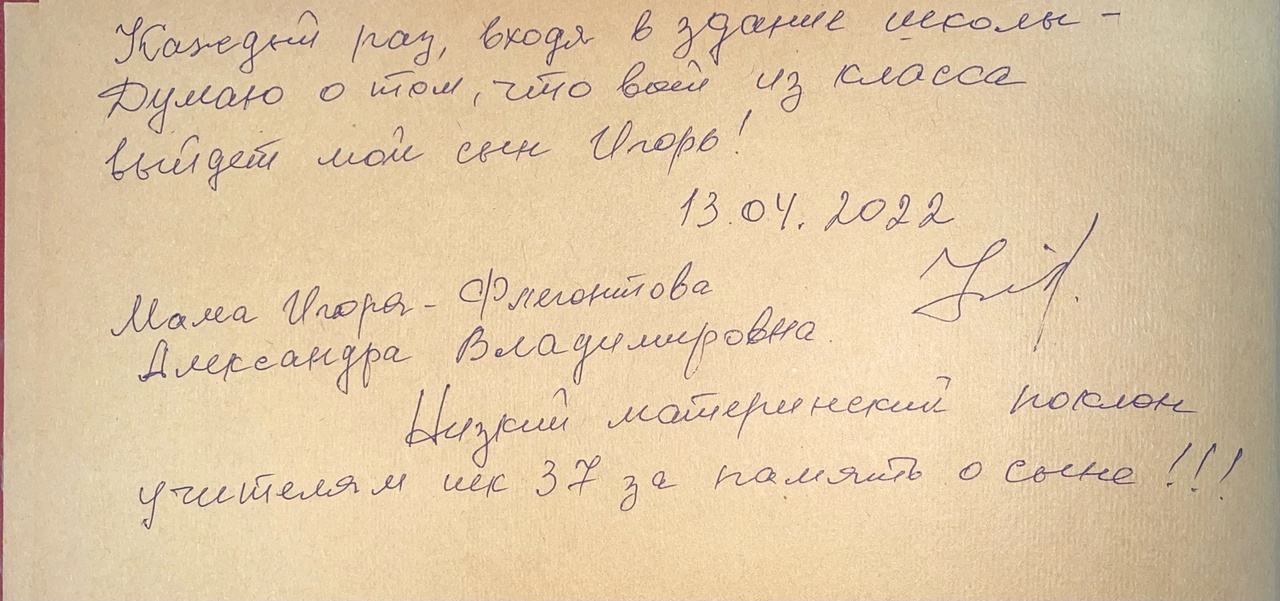 Каждый раз, входя в здание школы -
Думаю о том, что вот из класса
выйдет мой сын Игорь!
13.04.2022
Мама Игоря - Флегонтова
Александра Владимировна
Низкий материнский поклон
учителям шк 37 за память о сыне!!!